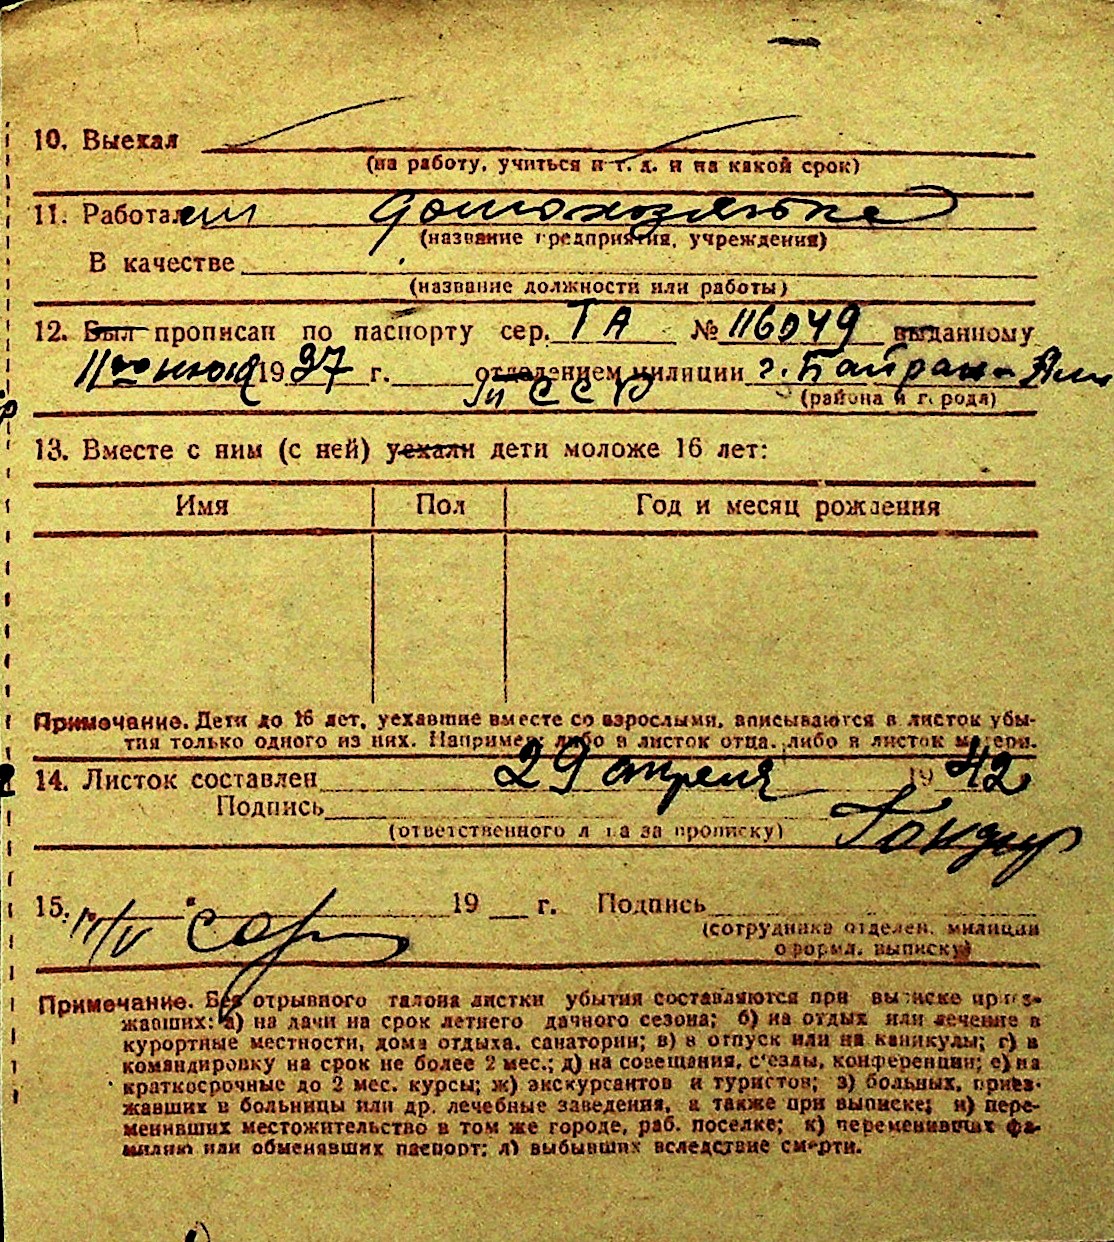 10. Выехал
(на работу, учиться и т. д. и на какой срок)
11. Работал домохозяйка
(название предприятия, учреждения)
В качестве
(название должности или работы)
12. Был прописан по паспорту сер. ТА № 116049 выданному
11го июня 1937 г. отделением милиции г. Байрам-Али
ТССР
(района и города)
13. Вместе с ним (с ней) уехали дети моложе 16 лет:
Имя Пол Год и месяц рождения
Примечание. Дети до 16 лет, уехавшие вместе со взрослыми, вписываются в листок убы-
тия только одного из них. Например: либо в листок отца, либо в листок матери.
14. Листок составлен 29 апреля 1942
Подпись
(ответственного лица за прописку)
15. 19 г. Подпись
(сотрудника отделен. милиции
оформл. выписку)
Примечание. Без отрывного талона листки убытия составляются при выписке приез-
жавших: а) на дачи на срок летнего дачного сезона; б) на отдых или лечение в
курортные местности, дома отдыха, санатории; в) в отпуск или на каникулы; г) в
командировку на срок не более 2 мес.; д) на совещания, с'езды, конференции; е) на
краткосрочные до 2 мес. курсы; ж) экскурсантов и туристов; з) больных, приез-
жавших в больницы или др. лечебные заведения, а также при выписке; и) пере-
менивших местожительство в том же городе, раб. поселке; к) переменивших фа-
милию или обменявших паспорт; л) выбывших вследствие смерти.